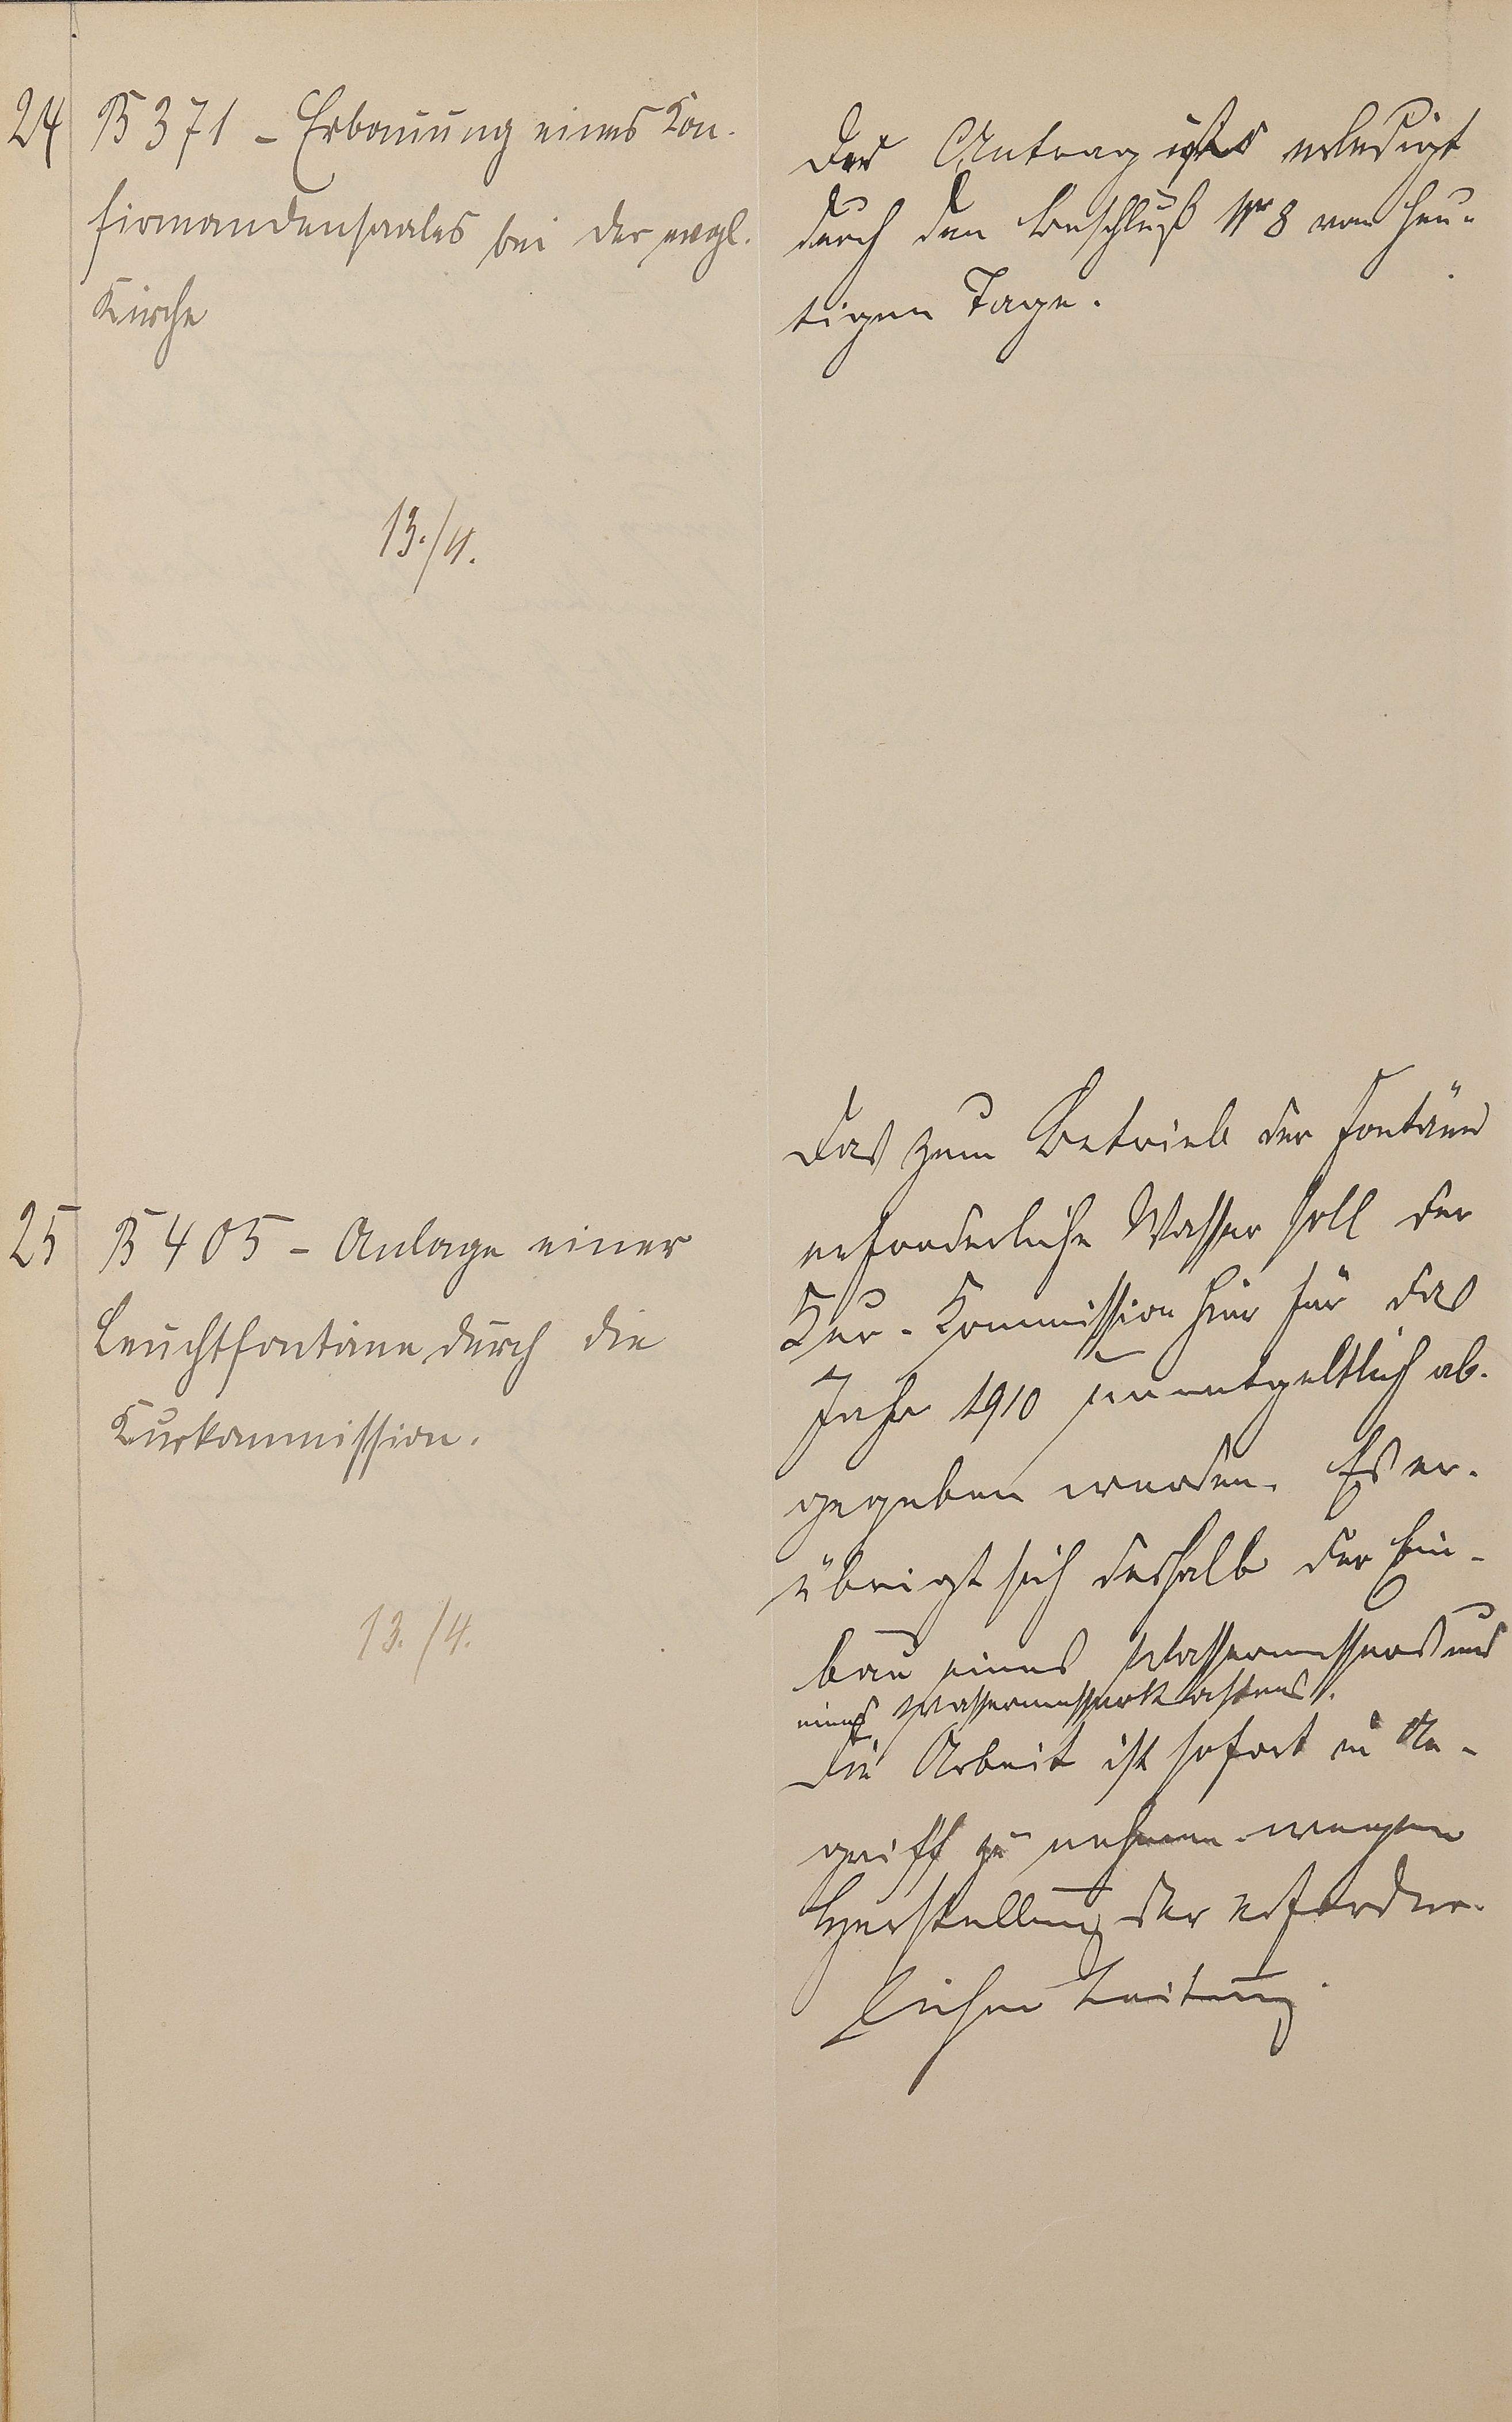 24 B 371 - Erbauung eines Kon-
firmandensaales bei der evgl.
Kirche
13./4.
Der Antrag ist erledigt
durch den Beschluß Nr 8 vom heu-
tigen Tage.
25 B 405 - Anlage einer
Leuchtfontäne durch die
Kurkommission.
13./4.
Das zum Betrieb der Fontäne
erforderliche Wasser soll der
Kur-Kommission hier für das
Jahr 1910 unentgeltlich ab-
gegeben werden. Es er-
übrigt sich deshalb der Ein-
bau eines Wassermessers und
eines Wassermesserkastens.
Die Arbeit ist sofort in An-
griff zu nehmen wegen
Herstellung der erforder-
lichen Leitung.